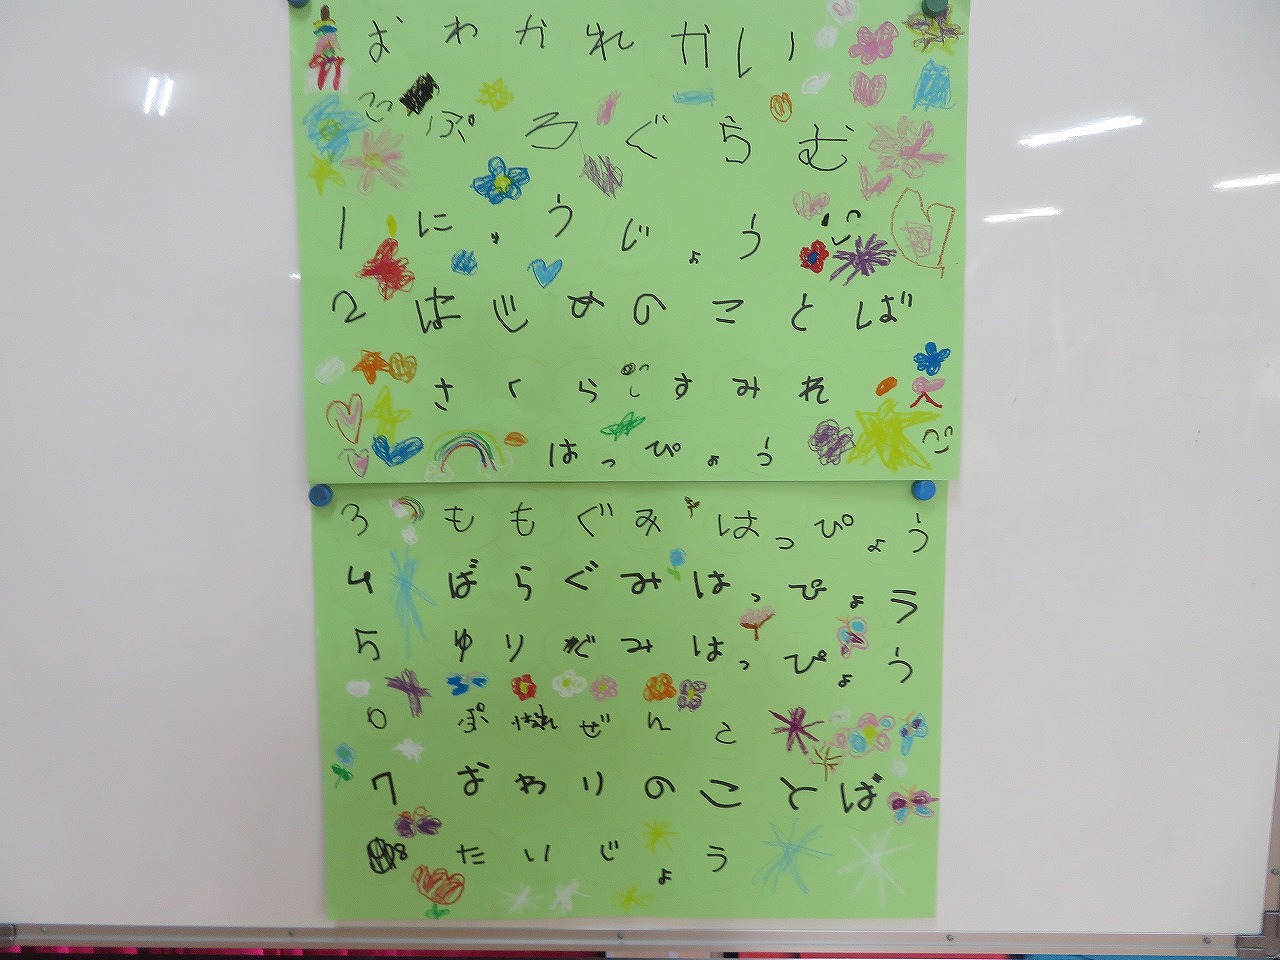 おわかれかい
ぷろぐらむ
1 にゅうじょう
2 はじめのことば
さくら すみれ
はっぴょう
3 ももぐみ はっぴょう
4 ばらぐみはっぴょう
5 ゆりぐみはっぴょう
ぷれぜんと
7 おわりのことば
8 たいじょう